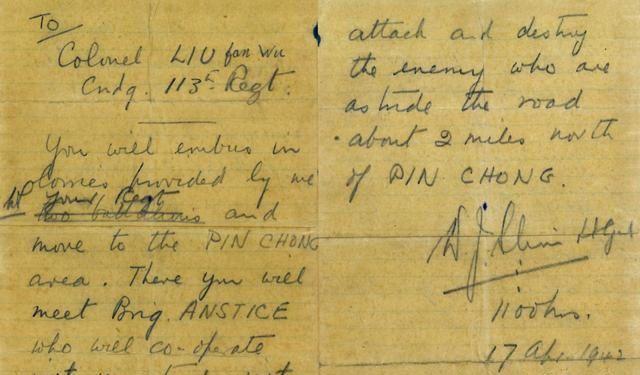 To
Colonel LIU fan wu
Cmdg. 113 Regt.
You will embus in
lorries provided by me
your Regt
two battalions and
move to the PIN CHONG
area. There you will
meet Brig. ANSTICE
who will co-operate
attack and destroy
the enemy who are
astride the road
about 2 miles north
of PIN CHONG.
W J Slim Lt Gen
1100 hrs.
17 Apr 1942